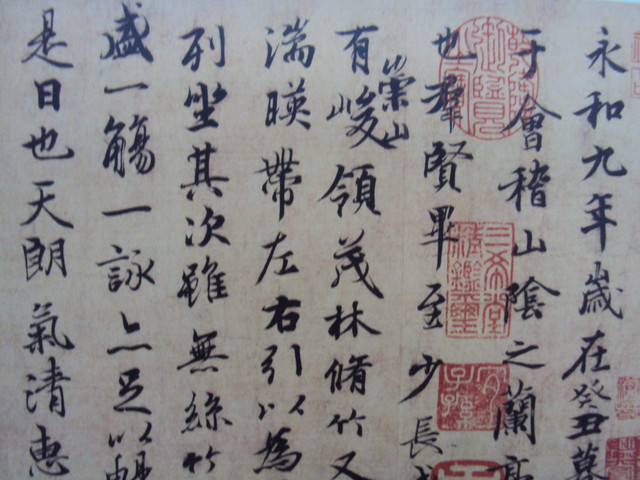 永和九年歲在癸丑暮
于會稽山陰之蘭亭
也羣賢畢至少長
有崇山峻領茂林脩竹又
湍暎帶左右引以為
列坐其次雖無絲竹
盛一觴一詠亦足以暢
是日也天朗氣清惠
三希堂精鑑璽
宜子孫